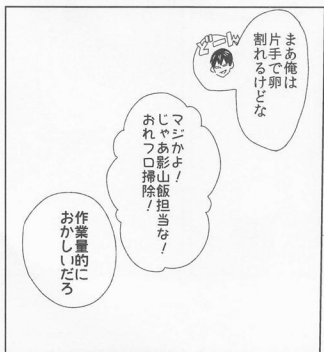 まあ俺は
片手で卵
割れるけどな
どやーん
マジかよ!
じゃあ影山飯担当な!
おれフロ掃除!
作業量的に
おかしいだろ